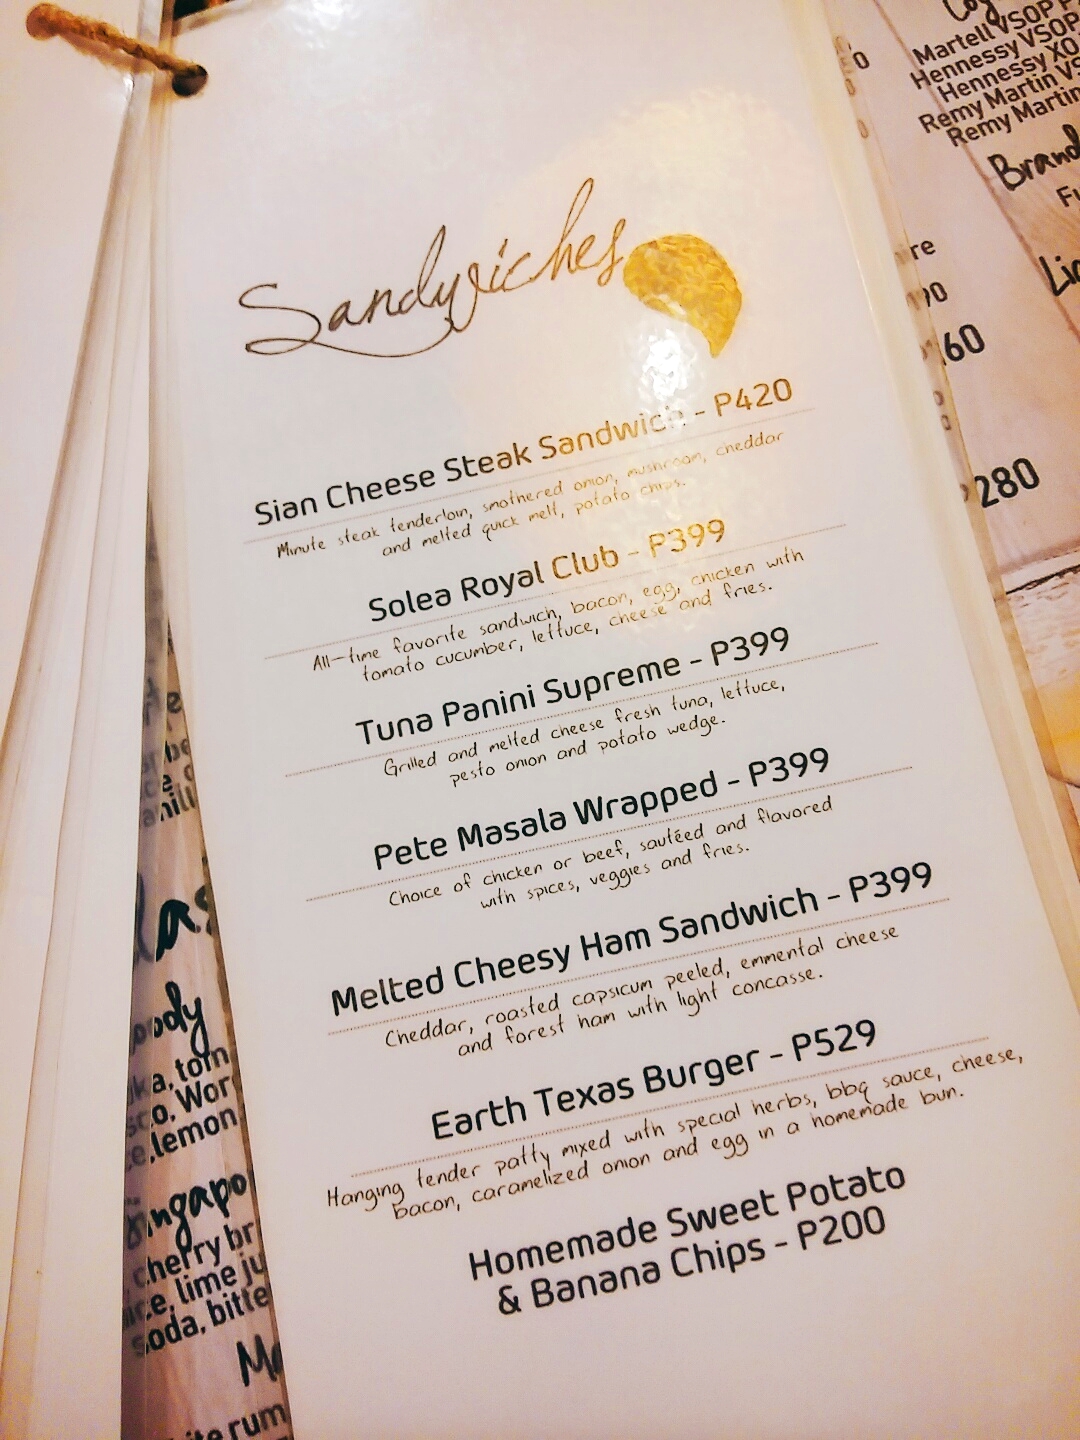 Sandwiches
Sian Cheese Steak Sandwich - P420
Minute steak tenderloin, smothered onion, mushroom, cheddar
and melted quick melt, potato chips.
Solea Royal Club - P399
All-time favorite sandwich, bacon, egg, chicken with
tomato cucumber, lettuce, cheese and fries.
Tuna Panini Supreme - P399
Grilled and melted cheese fresh tuna, lettuce,
pesto onion and potato wedge.
Pete Masala Wrapped - P399
Choice of chicken or beef, sautéed and flavored
with spices, veggies and fries.
Melted Cheesy Ham Sandwich - P399
Cheddar, roasted capsicum peeled, emmental cheese
and forest ham with light concasse.
Earth Texas Burger - P529
Hanging tender patty mixed with special herbs, bbq sauce, cheese,
bacon, caramelized onion and egg in a homemade bun.
Homemade Sweet Potato
& Banana Chips - P200
Martell VSOP
Hennessy VSOP
Hennessy XO
Remy Martin VS
Remy Martin
280
tom
lemon
cherry
lime
soda,
rum